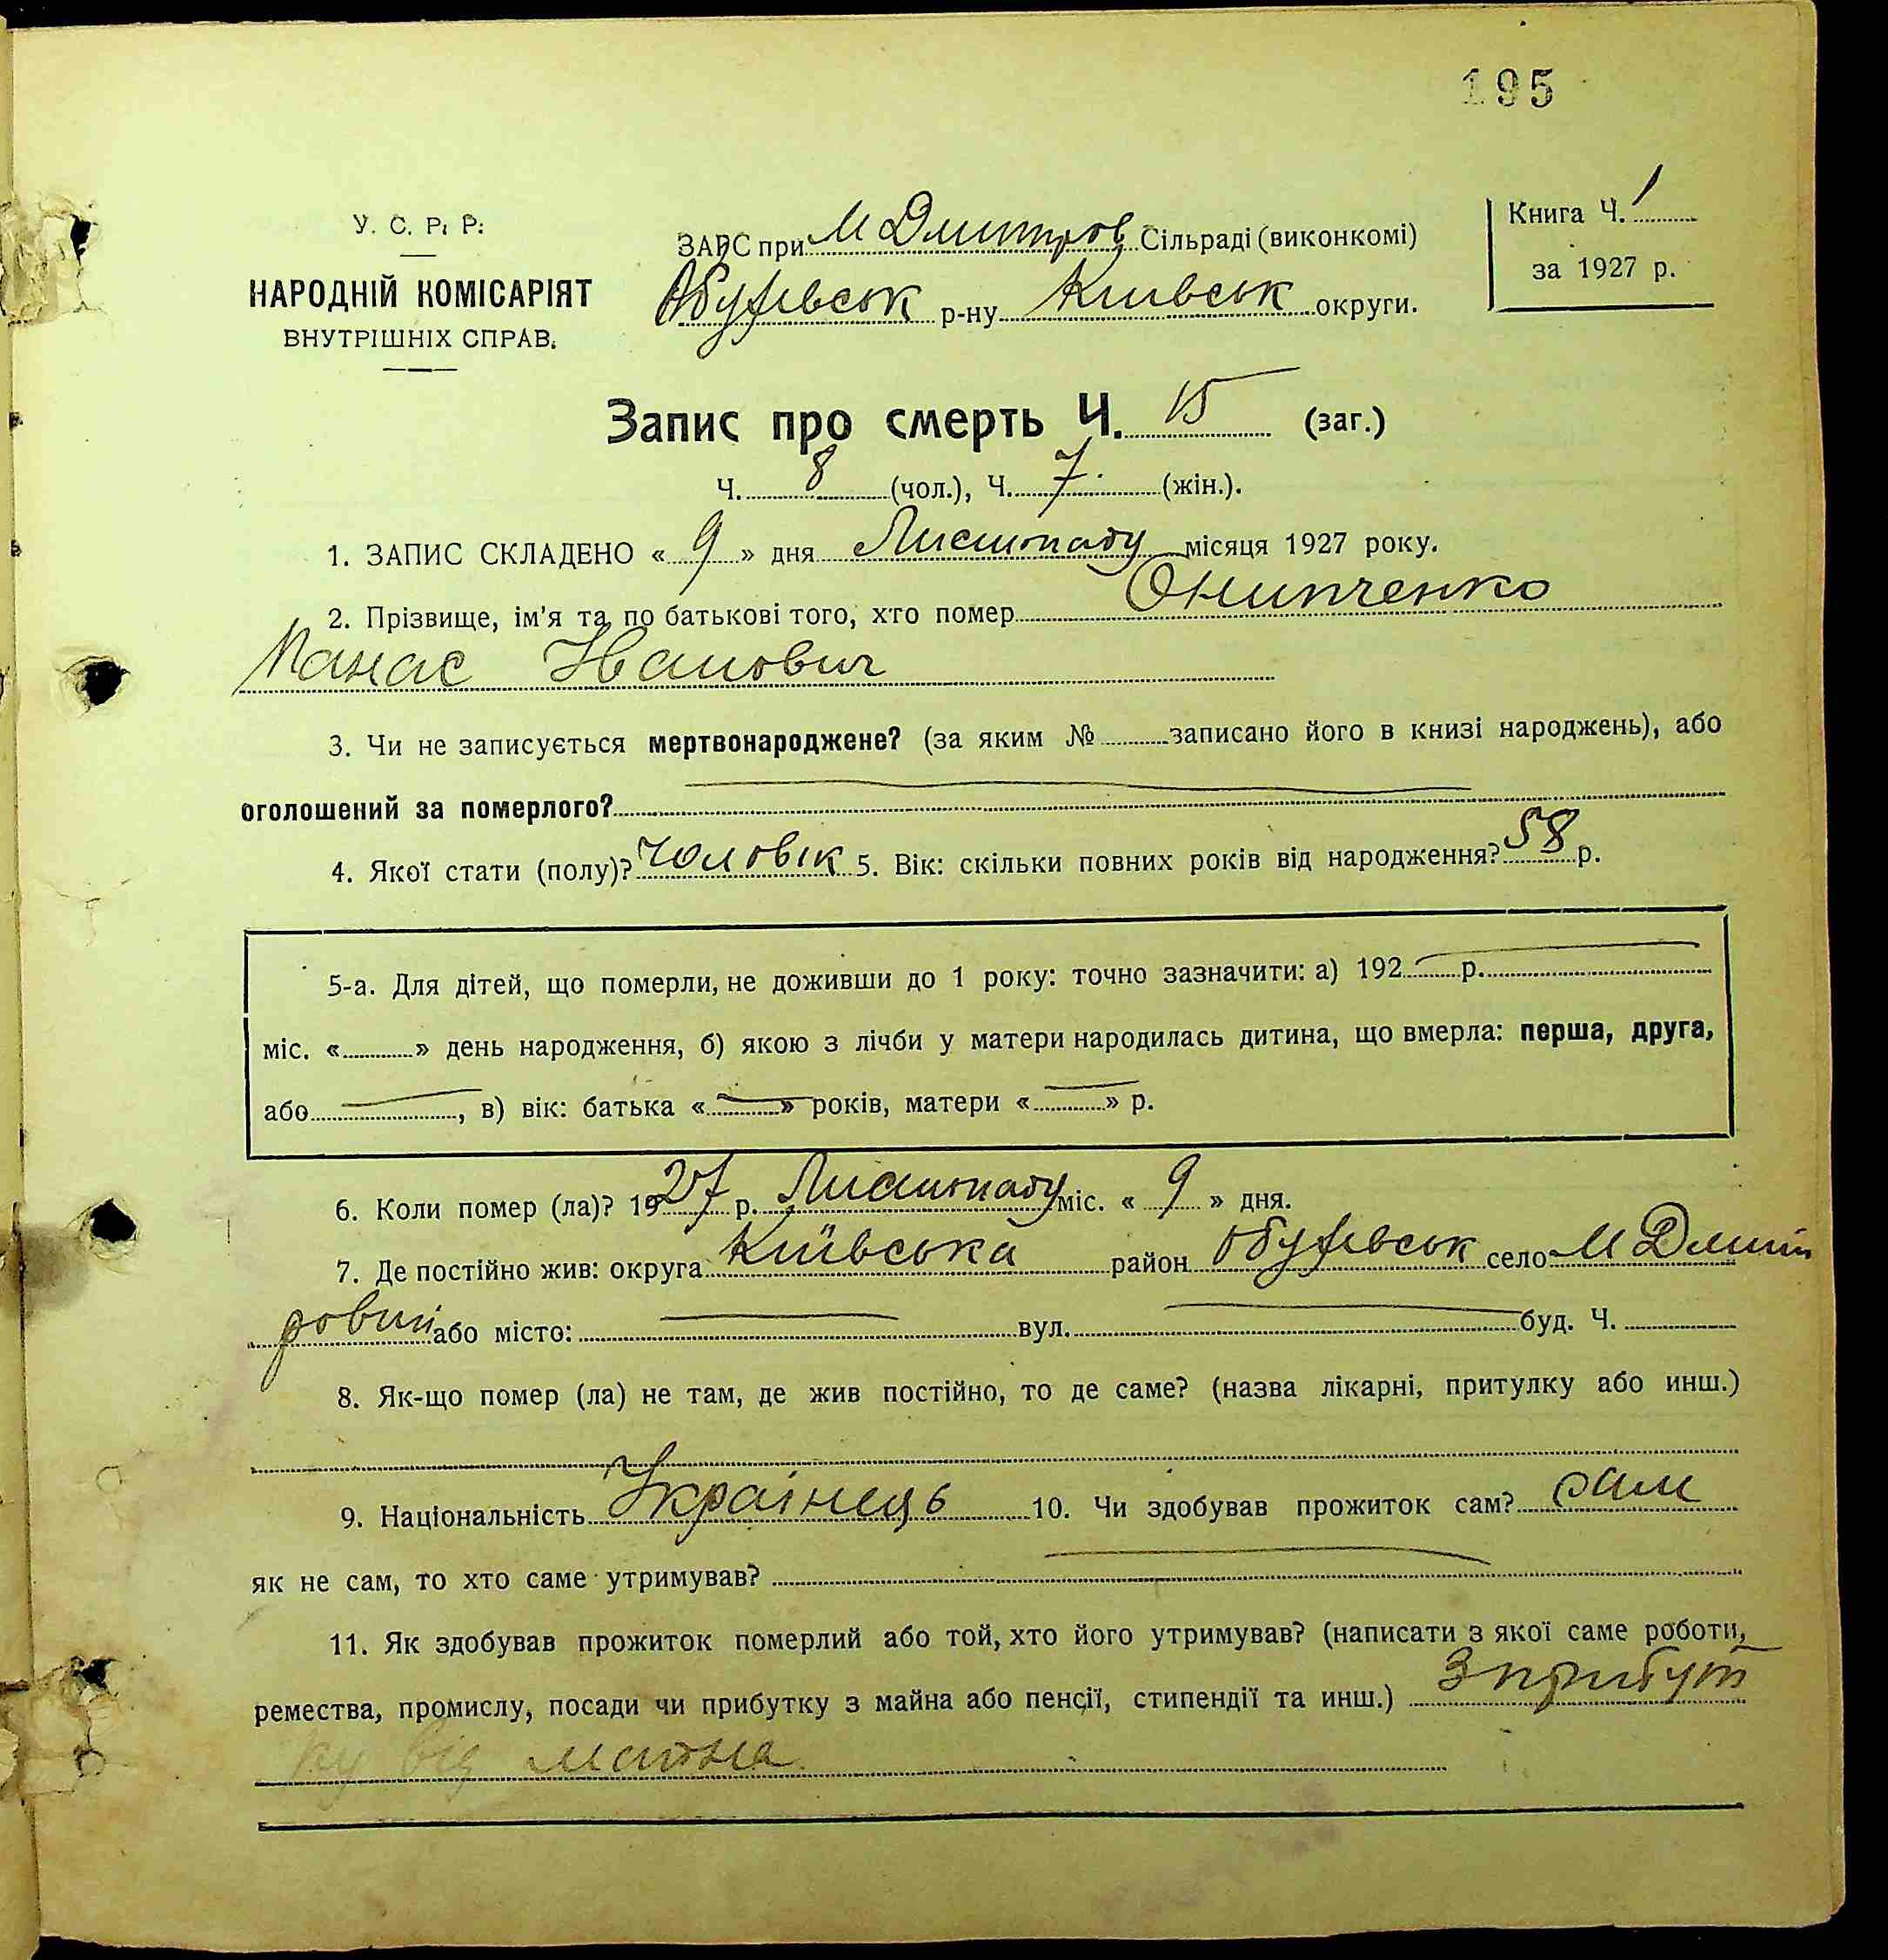 195
У. С. Р. Р.
НАРОДНІЙ КОМІСАРІЯТ
ВНУТРІШНІХ СПРАВ.
ЗАГС при М Дмитров Сільраді (виконкомі)
Обухівськ р-ну Київськ округи.
Книга Ч. 1
за 1927 р.
Запис про смерть Ч. 15 (заг.)
Ч. 8 (чол.), Ч. 7. (жін.).
1. ЗАПИС СКЛАДЕНО « 9 » дня Листопаду місяця 1927 року.
2. Прізвище, ім'я та по батькові того, хто помер Онипченко
Панас Іванович
3. Чи не записується мертвонароджене? (за яким № записано його в книзі народжень), або
оголошений за померлого?
4. Якої стати (полу)? Чоловік 5. Вік: скільки повних років від народження? 58 р.
5-а. Для дітей, що померли, не доживши до 1 року: точно зазначити: а) 192 р.
міс. « » день народження, б) якою з лічби у матери народилась дитина, що вмерла: перша, друга,
або , в) вік: батька « » років, матери « » р.
6. Коли помер (ла)? 1927 р. Листопаду міс. « 9 » дня.
7. Де постійно жив: округа Київська район Обухівськ село М Дмит
ровки або місто: вул. буд. Ч.
8. Як-що помер (ла) не там, де жив постійно, то де саме? (назва лікарні, притулку або инш.)
9. Національність Українець 10. Чи здобував прожиток сам? сам
як не сам, то хто саме утримував?
11. Як здобував прожиток померлий або той, хто його утримував? (написати з якої саме роботи,
ремества, промислу, посади чи прибутку з майна або пенсії, стипендії та инш.) З прибут
ку від майна